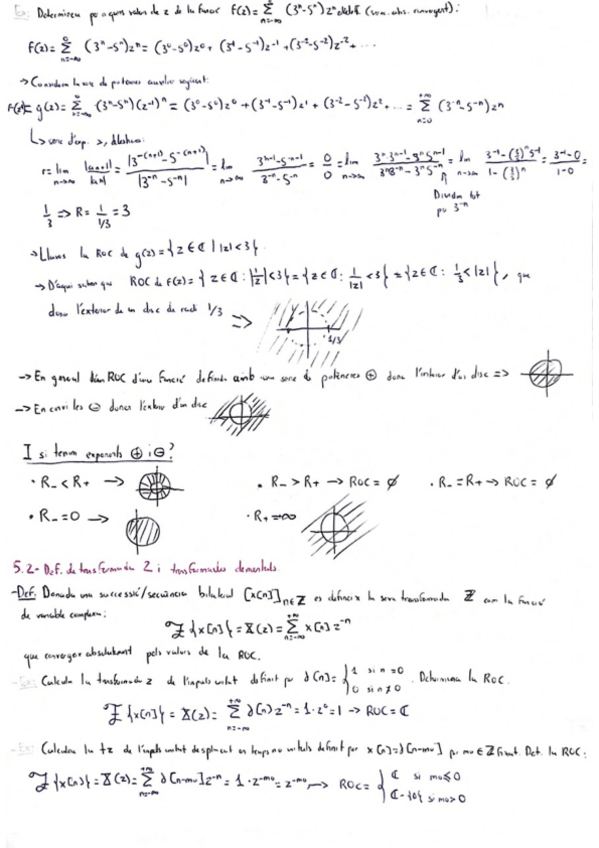 Ex: Determineu per a quins valors de z de la funció f(z) = Σ_{n=-∞}^{0} (3^n - 5^n) z^n (conv. abs. convergent):
f(z) = Σ_{n=-∞}^{0} (3^n - 5^n) z^n = (3^0 - 5^0) z^0 + (3^-1 - 5^-1) z^-1 + (3^-2 - 5^-2) z^-2 + ...
→ Considerem la sèrie de potències auxiliar següent:
g(z) = Σ_{n=-∞}^{0} (3^n - 5^n)(z^-1)^n = (3^0 - 5^0) z^0 + (3^-1 - 5^-1) z^1 + (3^-2 - 5^-2) z^2 + ... = Σ_{n=0}^{+∞} (3^-n - 5^-n) z^n
↳ sèrie d'exp. >,
r = lim_{n→∞} |a_{n+1}| / |a_n| = |3^-(n+1) - 5^-(n+1)| / |3^-n - 5^-n| = lim_{n→∞} (3^{-n-1} - 5^{-n-1}) / (3^-n - 5^-n) = 0/0 = lim_{n→∞} (3^n 3^{-n-1} - 3^n 5^{-n-1}) / (3^n 3^-n - 3^n 5^-n) = lim_{n→∞} (3^-1 - (3/5)^n 5^-1) / (1 - (3/5)^n) = (3^-1 - 0) / (1 - 0) =
Dividim tot
per 3^-n
1/3 => R = 1/(1/3) = 3
→ Llavors la ROC de g(z) = {z∈ℂ | |z| < 3}
→ D'aquí sabem que ROC de f(z) = {z∈ℂ : |1/z| < 3} = {z∈ℂ : 1/|z| < 3} = {z∈ℂ : 1/3 < |z|}, que
dona l'exterior de un disc de radi 1/3 =>
1/3
→ En general la ROC d'una funció definida amb una sèrie de potències ⊕ dona l'interior d'un disc =>
→ En canvi les ⊖ dones l'exterior d'un disc
I si tenim exponents ⊕ i ⊖?
· R- < R+ →
· R- > R+ → ROC = ∅
· R- = R+ → ROC = ∅
· R- = 0 →
· R+ = +∞
5.2- Def. de transformada Z i transformades elementals
- Def. Donada una successió/seqüència bilateral [x[n]]_{n∈ℤ} es defineix la seva transformada Z com la funció
de variable complexa:
Z{x[n]} = X(z) = Σ_{n=-∞}^{+∞} x[n] z^-n
que convergeix absolutament pels valors de la ROC.
- Ex: Calculeu la transformada z de l'impuls unitat definit per ∂[n] = { 1 si n=0 / 0 si n≠0 . Determineu la ROC.
Z{x[n]} = X(z) = Σ_{n=-∞}^{+∞} ∂[n] z^-n = 1·z^0 = 1 → ROC = ℂ
- Ex: Calculeu la tz de l'impuls unitat desplaçat en temps definit per x[n] = ∂[n-m₀] per m₀∈ℤ fixat. Det. la ROC:
Z{x[n]} = X(z) = Σ_{n=-∞}^{+∞} ∂[n-m₀] z^-n = 1·z^-m₀ = z^-m₀ → ROC = { ℂ si m₀≤0 / ℂ-{0} si m₀>0